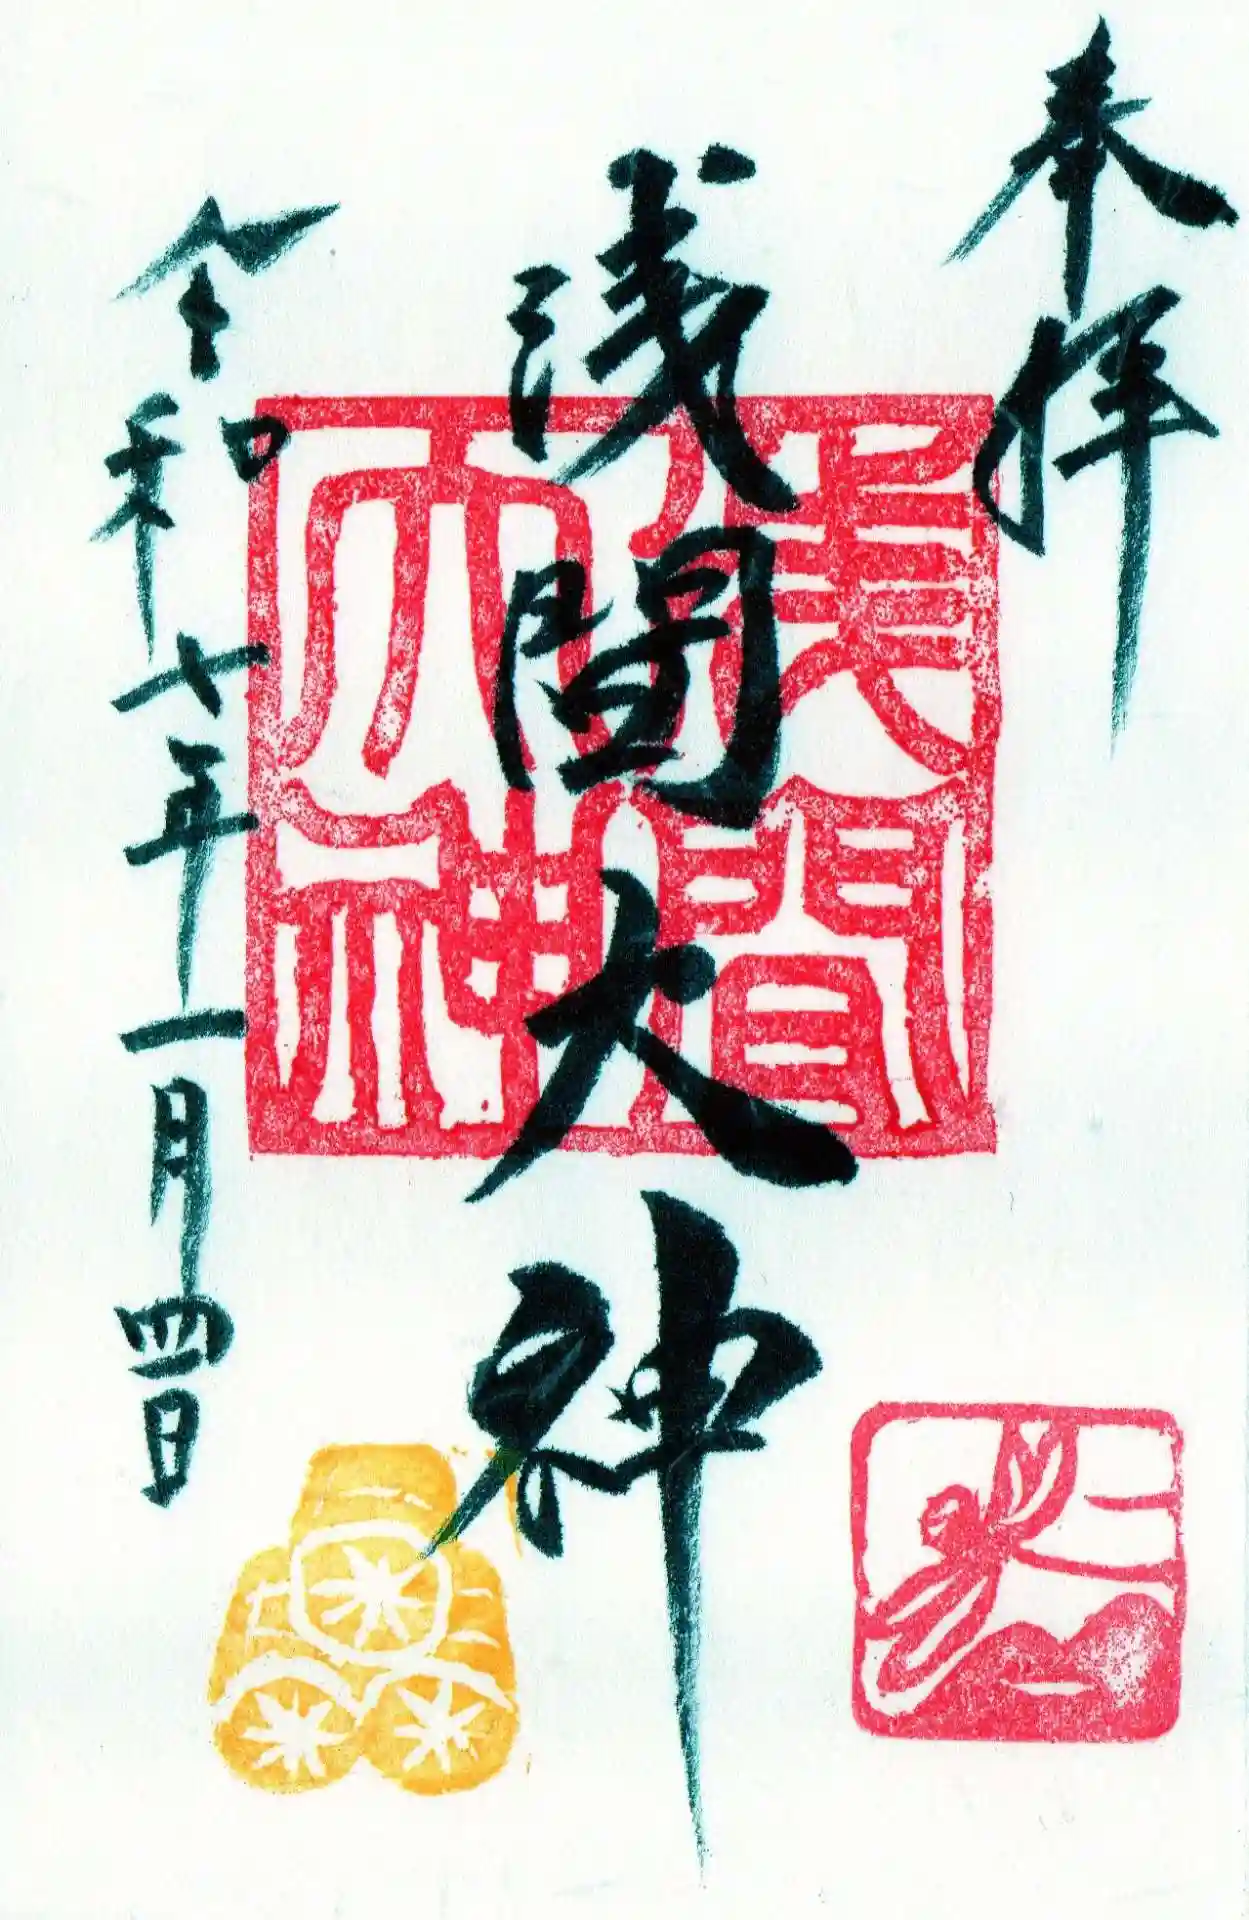 奉拝
浅間大神
令和七年一月四日
浅間
大神